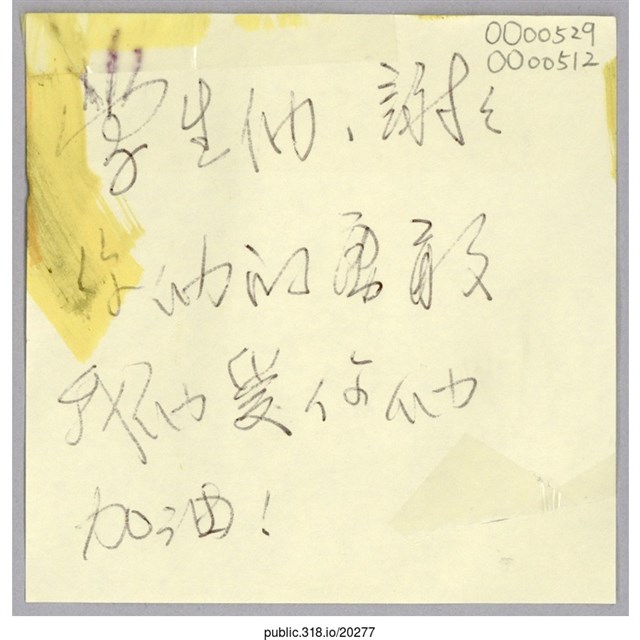 0000529
0000512
学生们、謝々
你们的勇敢
我们愛你们
加油!
public.318.io/20277